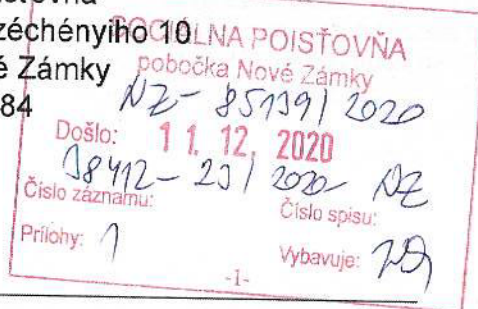 zéchényiho 10
é Zámky
84
SOCIÁLNA POISŤOVŇA
pobočka Nové Zámky
NZ- 85139/2020
Došlo: 11. 12. 2020
38412-23/2020-NZ
Číslo záznamu: Číslo spisu:
Prílohy: 1 Vybavuje:
-1-